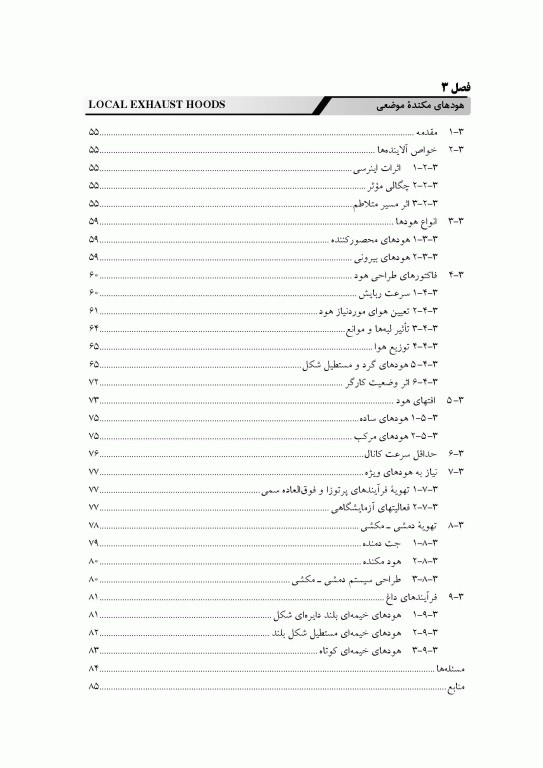 فصل ۳
هودهای مکندهٔ موضعی LOCAL EXHAUST HOODS
۳-۱ مقدمه ۵۵
۳-۲ خواص آلاینده‌ها ۵۵
۳-۲-۱ اثرات اینرسی ۵۵
۳-۲-۲ چگالی مؤثر ۵۵
۳-۲-۳ اثر مسیر متلاطم ۵۵
۳-۳ انواع هودها ۵۹
۳-۳-۱ هودهای محصورکننده ۵۹
۳-۳-۲ هودهای بیرونی ۵۹
۳-۴ فاکتورهای طراحی هود ۶۰
۳-۴-۱ سرعت ربایش ۶۰
۳-۴-۲ تعیین هوای موردنیاز هود ۶۱
۳-۴-۳ تأثیر لبه‌ها و موانع ۶۴
۳-۴-۴ توزیع هوا ۶۵
۳-۴-۵ هودهای گرد و مستطیل شکل ۶۵
۳-۴-۶ اثر وضعیت کارگر ۷۲
۳-۵ افتهای هود ۷۳
۳-۵-۱ هودهای ساده ۷۵
۳-۵-۲ هودهای مرکب ۷۵
۳-۶ حداقل سرعت کانال ۷۶
۳-۷ نیاز به هودهای ویژه ۷۷
۳-۷-۱ تهویهٔ فرآیندهای پرتوزا و فوق‌العاده سمی ۷۷
۳-۷-۲ فعالیتهای آزمایشگاهی ۷۷
۳-۸ تهویهٔ دمشی ـ مکشی ۷۸
۳-۸-۱ جت دمنده ۷۹
۳-۸-۲ هود مکنده ۸۰
۳-۸-۳ طراحی سیستم دمشی ـ مکشی ۸۰
۳-۹ فرآیندهای داغ ۸۱
۳-۹-۱ هودهای خیمه‌ای بلند دایره‌ای شکل ۸۱
۳-۹-۲ هودهای خیمه‌ای مستطیل شکل بلند ۸۲
۳-۹-۳ هودهای خیمه‌ای کوتاه ۸۳
مسئله‌ها ۸۴
منابع ۸۵